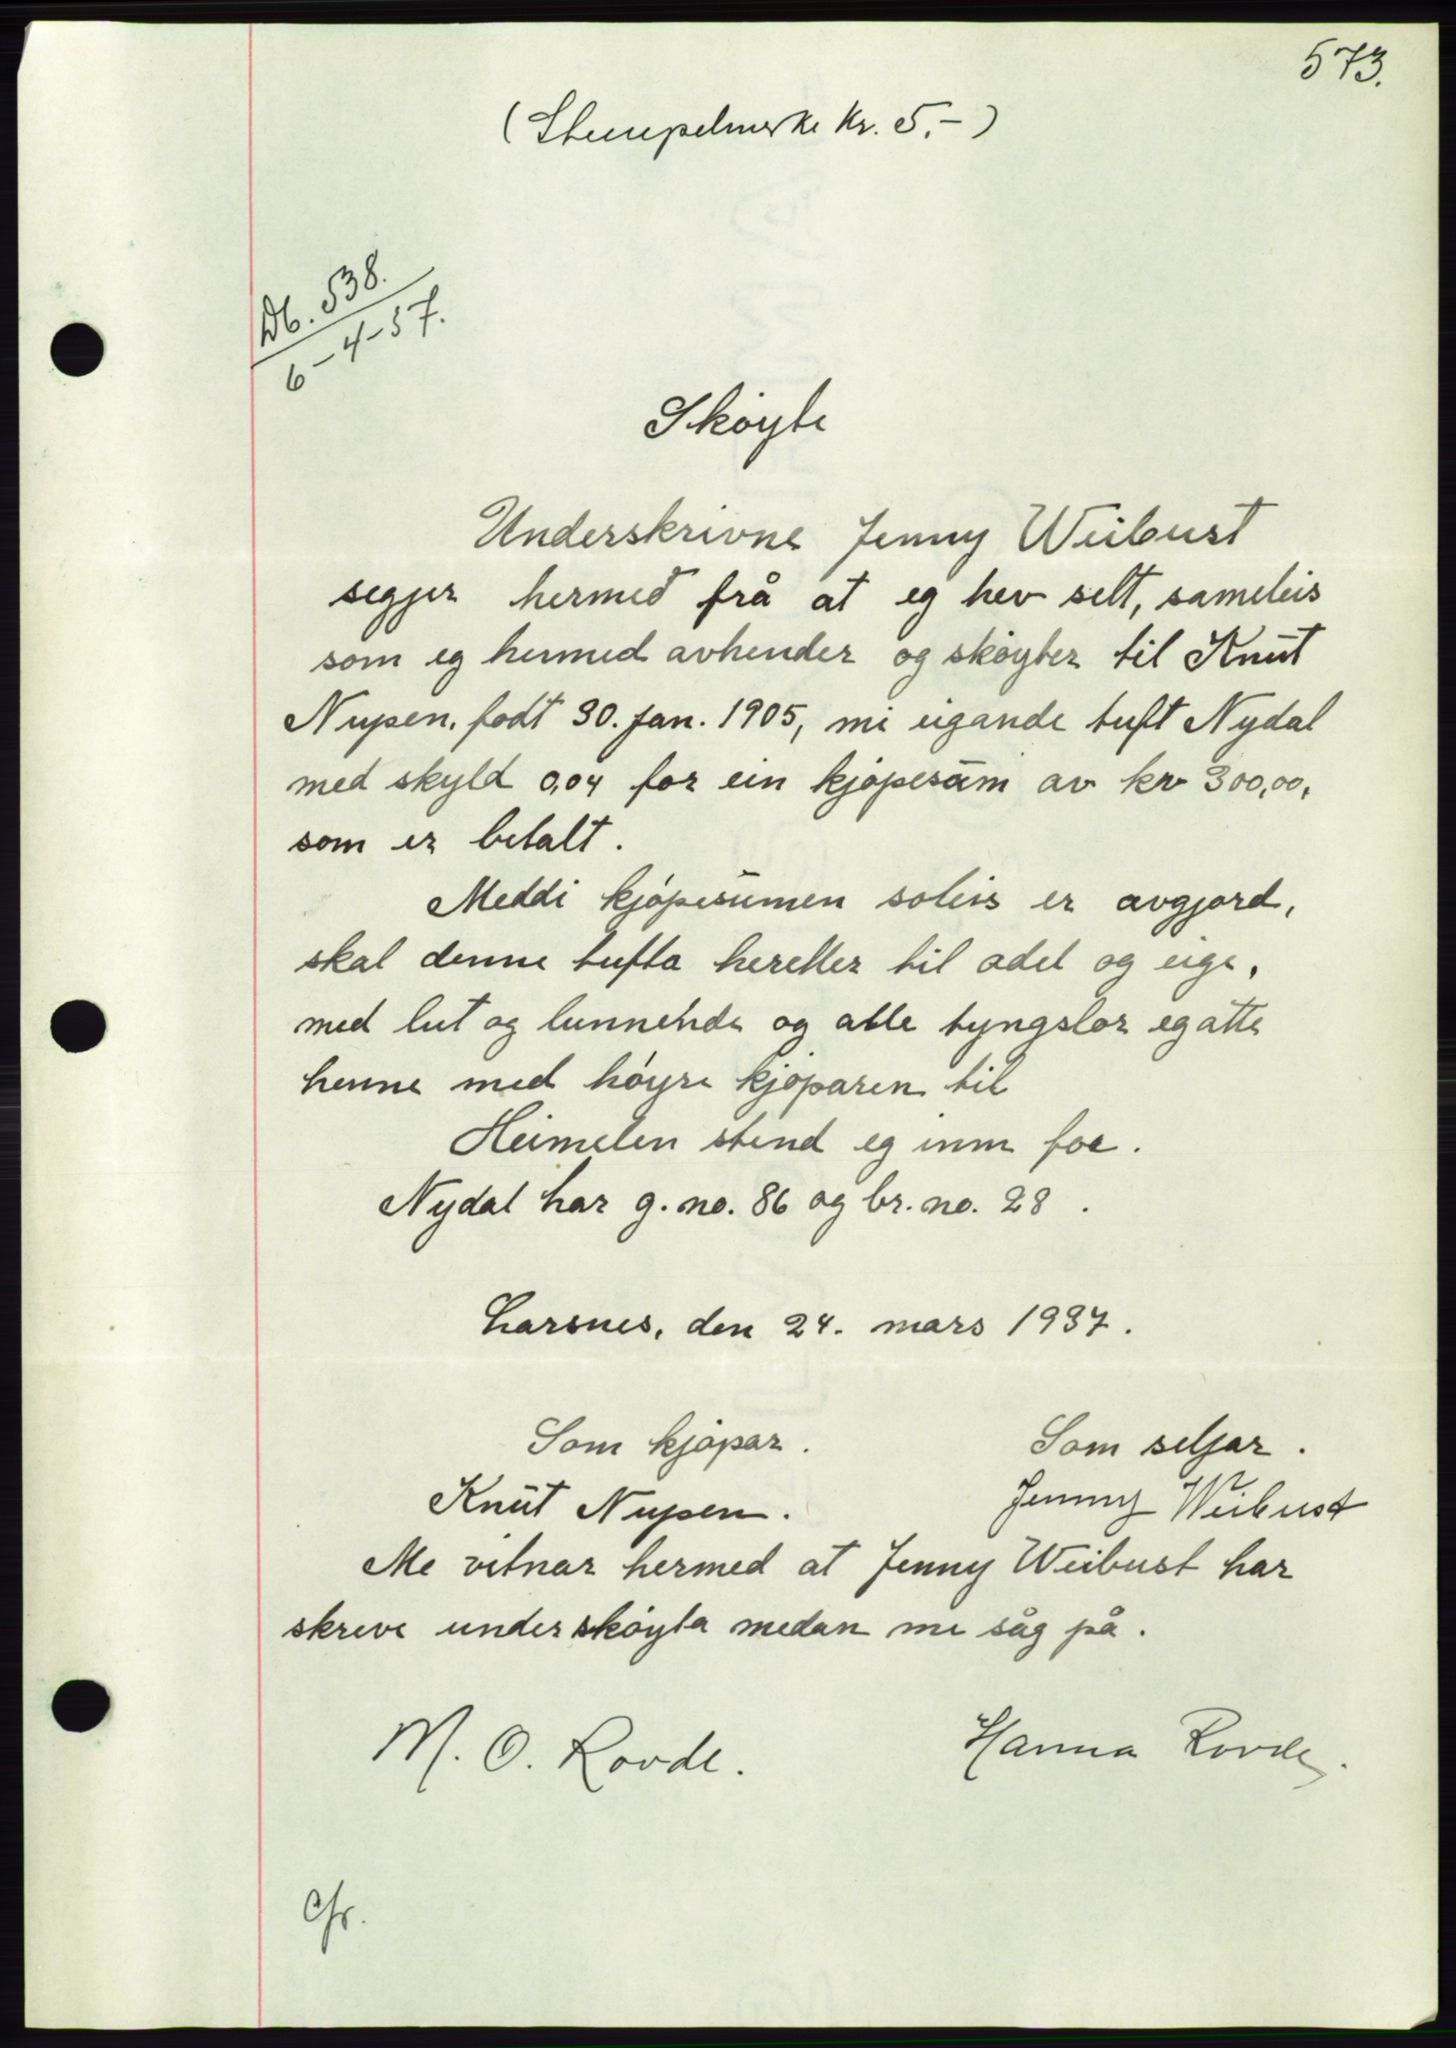 573.
(Stempelmerke Kr. 5.-)
Db. 538.
6-4-37.
Skøyte
Underskrivne Jenny Weibust
segjer hermed frå at eg hev selt, sameleis
som eg hermed avhender og skøyter til Knut
Nupen, født 30. jan. 1905, mi eigande tuft Nydal
med skyld 0,04 for ein kjøpesum av kr 300,00,
som er betalt.
Meddi kjøpesumen soleis er avgjord,
skal denne tufta heretter til odel og eige,
med lut og lunnende og alle tyngslor eg åtte
henne med høyre kjøparen til
Heimelen stend eg inm for.
Nydal har g. no. 86 og br. no. 28.
Larsnes, den 24. mars 1937.
Som kjøpar. Som seljar.
Knut Nupen. Jenny Weibust
Me vitnar hermed at Jenny Weibust har
skreve under skøyta medan me såg på.
M. O. Rovde. Hanna Rovde.